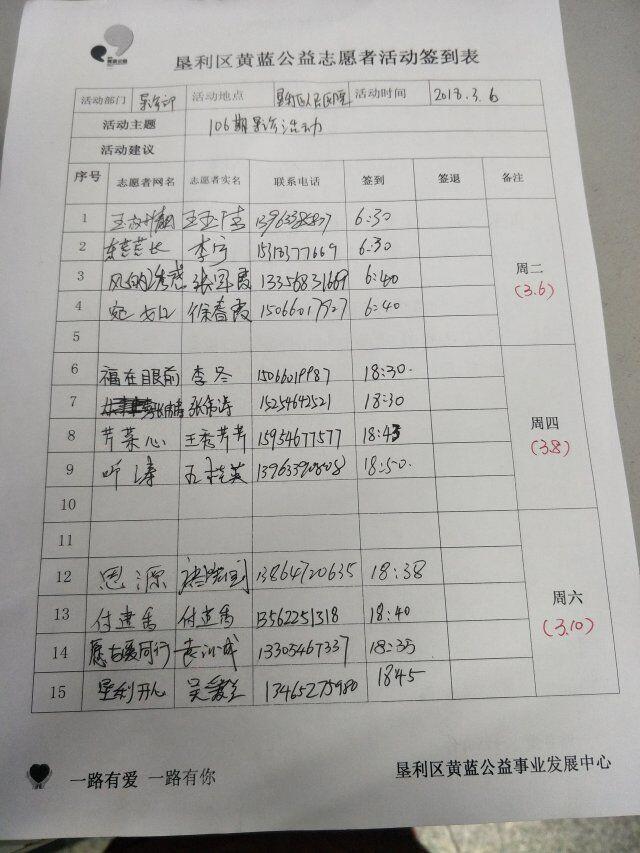 垦利区黄蓝公益志愿者活动签到表
活动部门 活动地点 垦利区人民医院 活动时间 2018.3.6
活动主题 106期 活动
活动建议
序号 志愿者网名 志愿者实名 联系电话 签到 签退 备注
1 6:30
2 李宁 15318377669 6:30
3 风的诱惑 张军霞 13356831669 6:40
4 徐春霞 15066017927 6:40
周二
(3.6)
5
6 福在眼前 李冬 15066019987 18:30.
7 张伟涛 15254642521 18:30
8 芹菜心 王秀芹 15954677577 18:43
9 听涛 王桂英 13963390808 18:50.
周四
(3.8)
10
11
12 思源 13864720635 18:38
13 付建禹 付建禹 13562251318 18:40
14 愿与爱同行 13305467337 18:35
15 垦利开心 吴 13465275980 1845
周六
(3.10)
一路有爱 一路有你 垦利区黄蓝公益事业发展中心